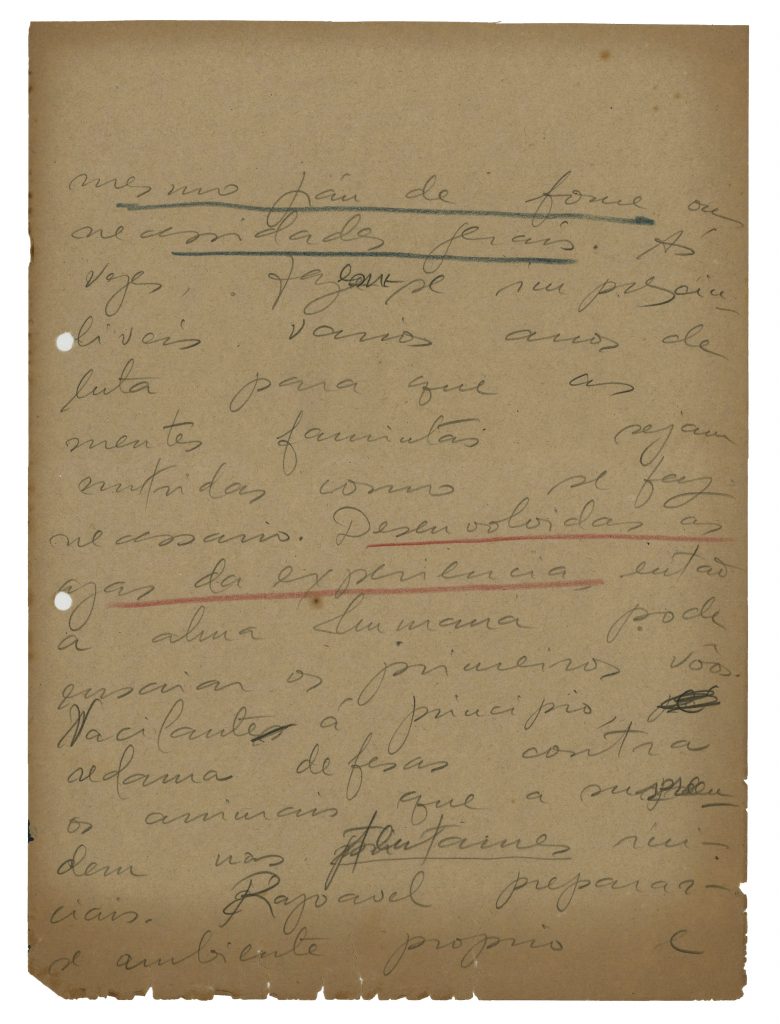 mesmo pán de fome ou
necessidades gerais. Ás
vezes, fazem-se imprescin-
diveis varios anos de
luta para que as
mentes famintas sejam
nutridas como se faz
necessario. Desenvolvidas as
azas da experiencia, então
a alma humana pode
ensaiar os primeiros vôos.
Vacilante á principio,
reclama defesas contra
os animais que a surpreen-
dem nos tentames ini-
ciais. Razoavel preparar-
se ambiente proprio e